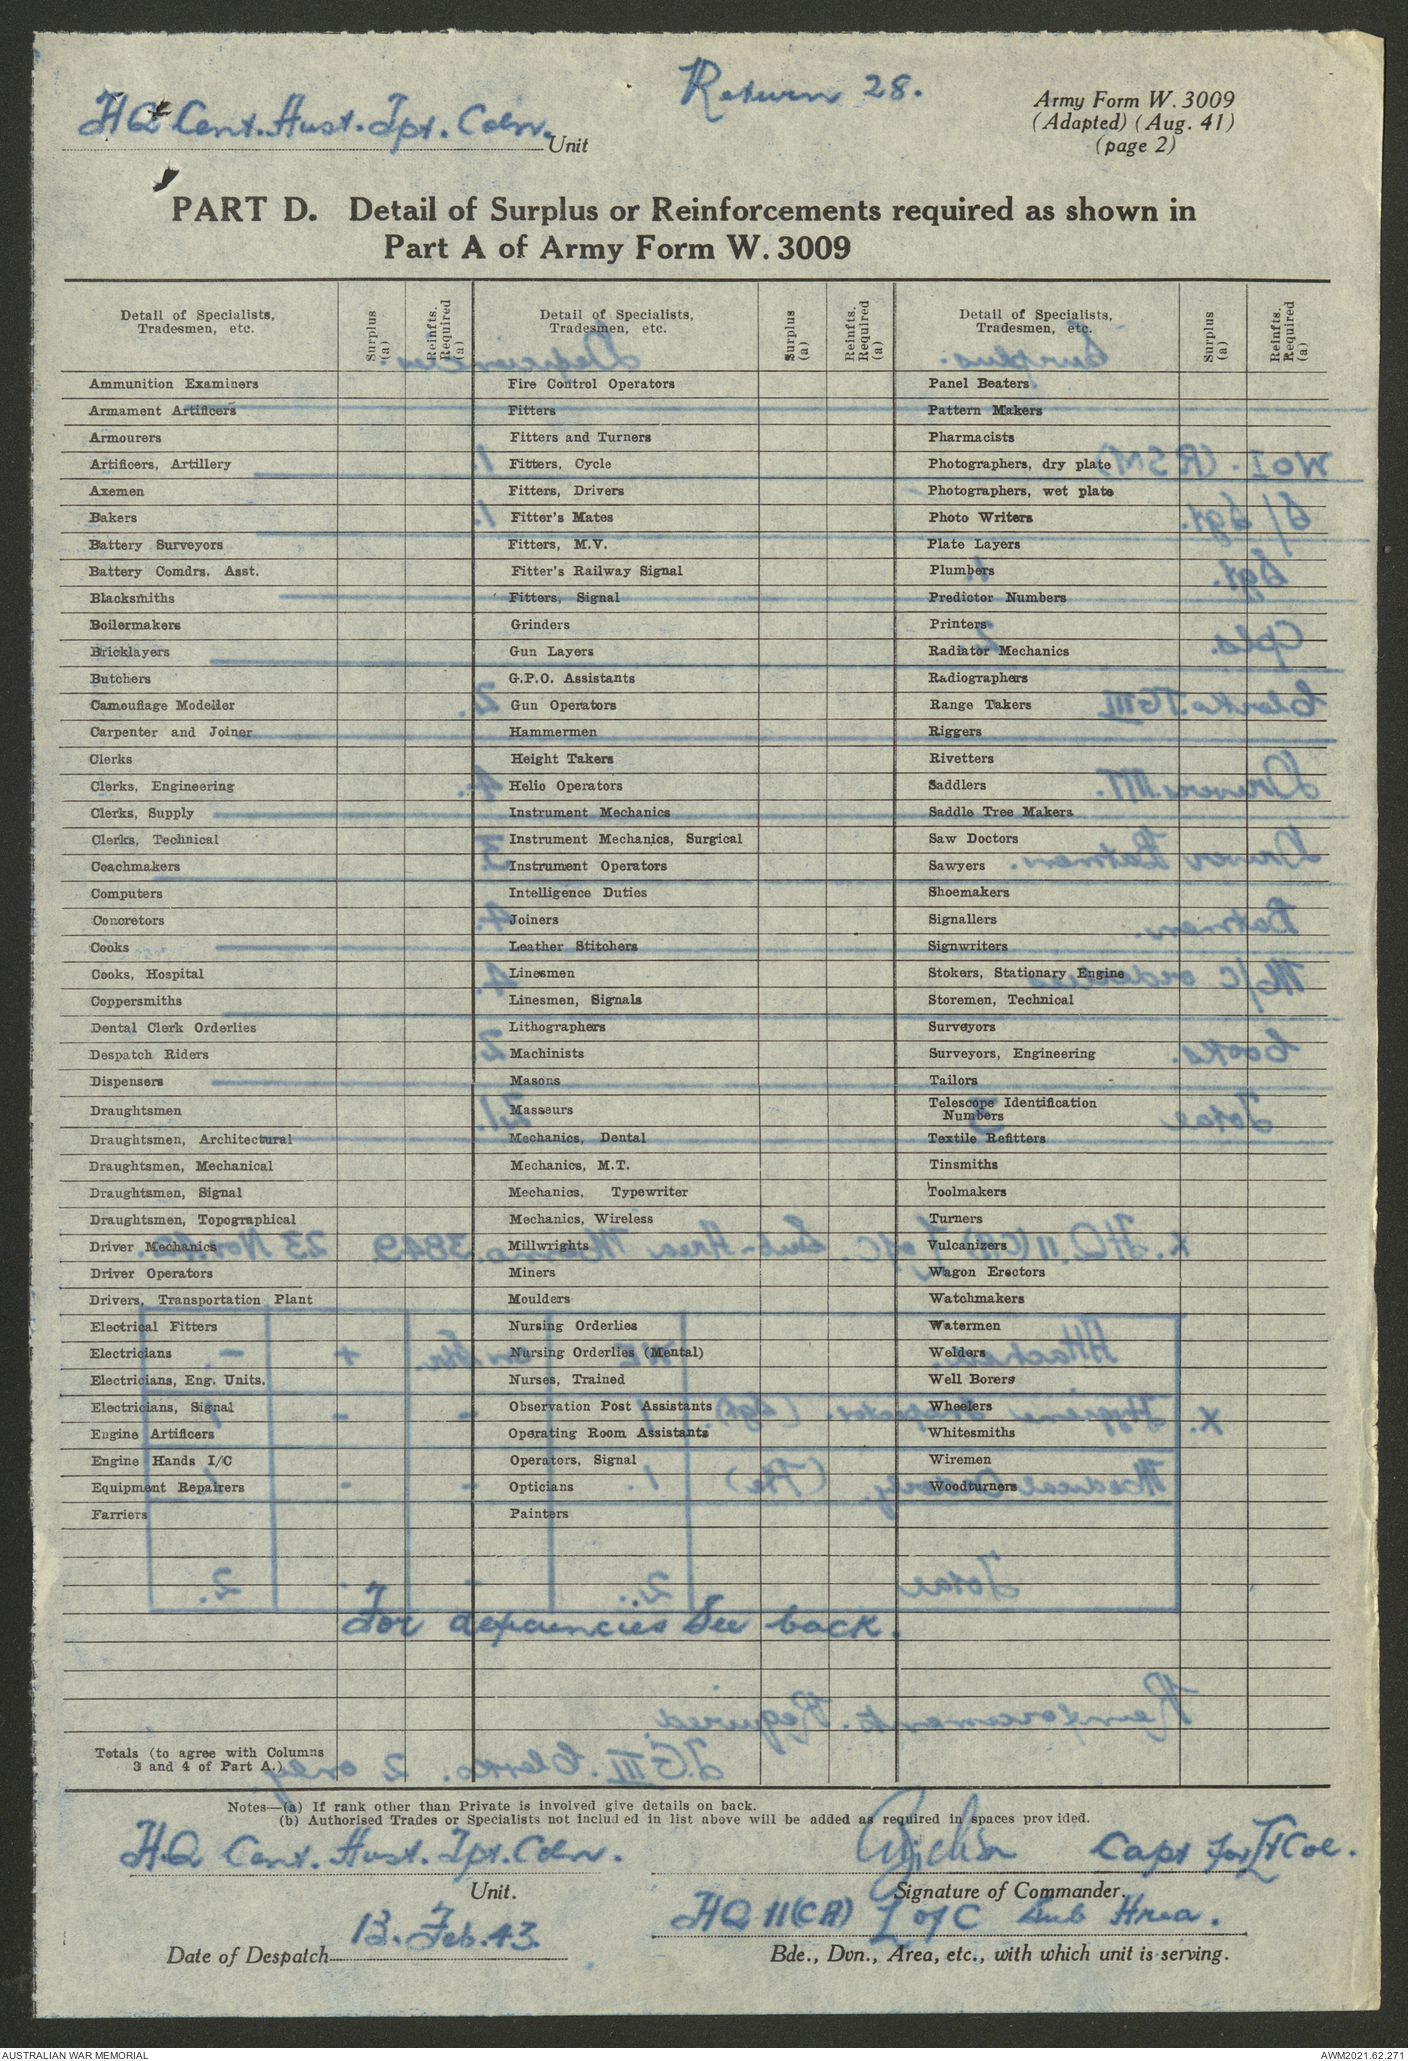 Return 28.
HQ Cent. Aust. Tpt. Coln. Unit
Army Form W. 3009
(Adapted) (Aug. 41)
(page 2)
PART D. Detail of Surplus or Reinforcements required as shown in
Part A of Army Form W. 3009
Detail of Specialists, Tradesmen, etc. | Surplus (a) | Reinfts. Required (a) | Detail of Specialists, Tradesmen, etc. | Surplus (a) | Reinfts. Required (a) | Detail of Specialists, Tradesmen, etc. | Surplus (a) | Reinfts. Required (a)
Ammunition Examiners | Fire Control Operators | Panel Beaters
Armament Artificers | Fitters | Pattern Makers
Armourers | Fitters and Turners | Pharmacists
Artificers, Artillery | Fitters, Cycle | Photographers, dry plate
Axemen | Fitters, Drivers | Photographers, wet plate
Bakers | Fitter's Mates | Photo Writers
Battery Surveyors | Fitters, M.V. | Plate Layers
Battery Comdrs. Asst. | Fitter's Railway Signal | Plumbers
Blacksmiths | Fitters, Signal | Predictor Numbers
Boilermakers | Grinders | Printers
Bricklayers | Gun Layers | Radiator Mechanics
Butchers | G.P.O. Assistants | Radiographers
Camouflage Modeller | Gun Operators | Range Takers
Carpenter and Joiner | Hammermen | Riggers
Clerks | Height Takers | Rivetters
Clerks, Engineering | Helio Operators | Saddlers
Clerks, Supply | Instrument Mechanics | Saddle Tree Makers
Clerks, Technical | Instrument Mechanics, Surgical | Saw Doctors
Coachmakers | Instrument Operators | Sawyers
Computers | Intelligence Duties | Shoemakers
Concretors | Joiners | Signallers
Cooks | Leather Stitchers | Signwriters
Cooks, Hospital | Linesmen | Stokers, Stationary Engine
Coppersmiths | Linesmen, Signals | Storemen, Technical
Dental Clerk Orderlies | Lithographers | Surveyors
Despatch Riders | Machinists | Surveyors, Engineering
Dispensers | Masons | Tailors
Draughtsmen | Masseurs | Telescope Identification Numbers
Draughtsmen, Architectural | Mechanics, Dental | Textile Refitters
Draughtsmen, Mechanical | Mechanics, M.T. | Tinsmiths
Draughtsmen, Signal | Mechanics, Typewriter | Toolmakers
Draughtsmen, Topographical | Mechanics, Wireless | Turners
Driver Mechanics | Millwrights | Vulcanizers
Driver Operators | Miners | Wagon Erectors
Drivers, Transportation Plant | Moulders | Watchmakers
Electrical Fitters | Nursing Orderlies | Watermen
Electricians | Nursing Orderlies (Mental) | Welders
Electricians, Eng. Units. | Nurses, Trained | Well Borers
Electricians, Signal | Observation Post Assistants | Wheelers
Engine Artificers | Operating Room Assistants | Whitesmiths
Engine Hands I/C | Operators, Signal | Wiremen
Equipment Repairers | Opticians | Woodturners
Farriers | Painters
For defciencies See back.
Totals (to agree with Columns
3 and 4 of Part A.)
Notes—(a) If rank other than Private is involved give details on back.
(b) Authorised Trades or Specialists not included in list above will be added as required in spaces provided.
H.Q Cent. Aust. Tpt. Coln.
Unit.
Capt for Lt Col.
Signature of Commander.
13. Feb. 43.
Date of Despatch
HQ 11(CA) L of C Sub Area.
Bde., Dvn., Area, etc., with which unit is serving.
AUSTRALIAN WAR MEMORIAL
AWM2021.62.271